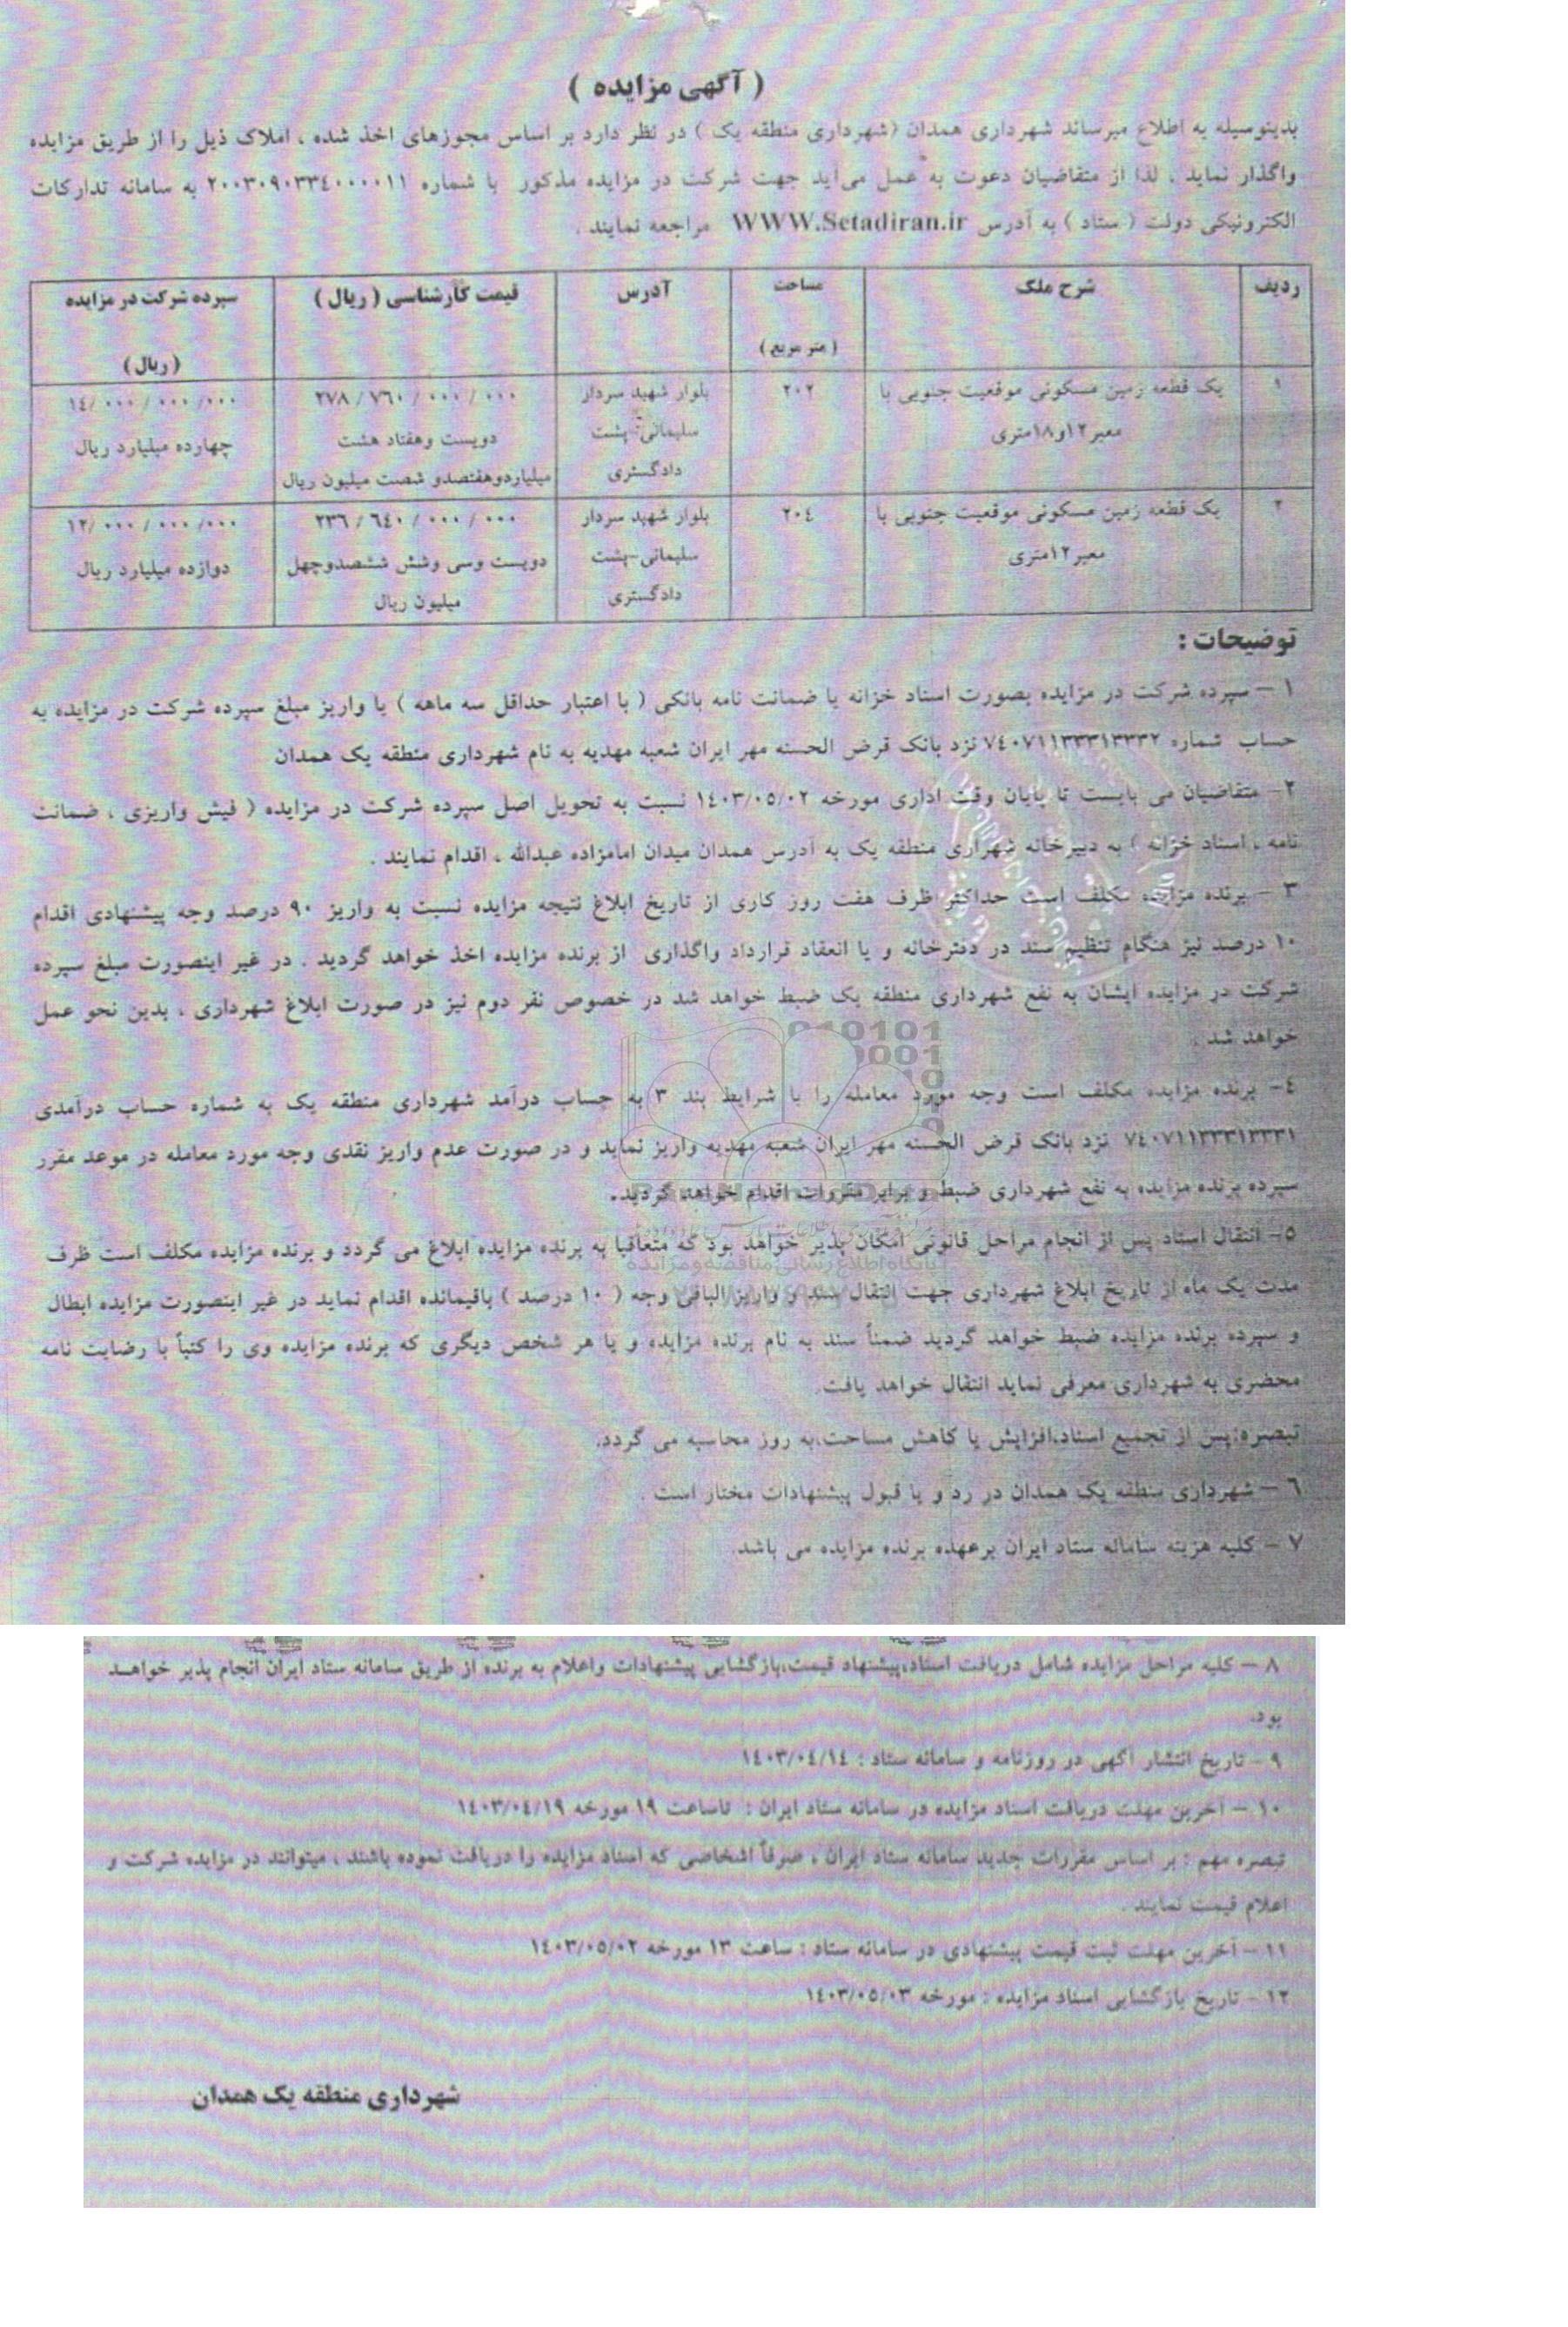 ( آگهی مزایده )
بدینوسیله به اطلاع میرساند شهرداری همدان (شهرداری منطقه یک ) در نظر دارد بر اساس مجوزهای اخذ شده ، املاک ذیل را از طریق مزایده
واگذار نماید ، لذا از متقاضیان دعوت به عمل می‌آید جهت شرکت در مزایده مذکور با شماره ۲۰۰۳۰۹۰۳۳٤۰۰۰۰۱۱ به سامانه تدارکات
الکترونیکی دولت ( ستاد ) به آدرس WWW.Setadiran.ir مراجعه نمایند .
ردیف شرح ملک مساحت آدرس قیمت کارشناسی ( ریال ) سپرده شرکت در مزایده
( متر مربع ) ( ریال )
۱ یک قطعه زمین مسکونی موقعیت جنوبی با ۲۰۲ بلوار شهید سردار ۲۷۸ / ۷٦۰ / ۰۰۰ / ۰۰۰ ۱٤/ ۰۰۰ / ۰۰۰ /۰۰۰
معبر۱۲و۱۸متری سلیمانی-پشت دویست وهفتاد هشت چهارده میلیارد ریال
دادگستری میلیاردوهفتصدو شصت میلیون ریال
۲ یک قطعه زمین مسکونی موقعیت جنوبی با ۲۰٤ بلوار شهید سردار ۲۳٦ / ٦٤۰ / ۰۰۰ / ۰۰۰ ۱۲/ ۰۰۰ / ۰۰۰ /۰۰۰
معبر۱۲متری سلیمانی-پشت دویست وسی وشش ششصدوچهل دوازده میلیارد ریال
دادگستری میلیون ریال
توضیحات :
۱ – سپرده شرکت در مزایده بصورت اسناد خزانه یا ضمانت نامه بانکی ( با اعتبار حداقل سه ماهه ) یا واریز مبلغ سپرده شرکت در مزایده به
حساب شماره ۷٤۰۷۱۱۳۳۳۱۳۳۳۲ نزد بانک قرض الحسنه مهر ایران شعبه مهدیه به نام شهرداری منطقه یک همدان
۲- متقاضیان می بایست تا پایان وقت اداری مورخه ۱٤۰۳/۰۵/۰۲ نسبت به تحویل اصل سپرده شرکت در مزایده ( فیش واریزی ، ضمانت
نامه ، اسناد خزانه ) به دبیرخانه شهراری منطقه یک به آدرس همدان میدان امامزاده عبدالله ، اقدام نمایند .
۳ – برنده مزایده مکلف است حداکثر ظرف هفت روز کاری از تاریخ ابلاغ نتیجه مزایده نسبت به واریز ۹۰ درصد وجه پیشنهادی اقدام
۱۰ درصد نیز هنگام تنظیم سند در دفترخانه و یا انعقاد قرارداد واگذاری از برنده مزایده اخذ خواهد گردید . در غیر اینصورت مبلغ سپرده
شرکت در مزایده ایشان به نفع شهرداری منطقه یک ضبط خواهد شد در خصوص نفر دوم نیز در صورت ابلاغ شهرداری ، بدین نحو عمل
خواهد شد .
٤- برنده مزایده مکلف است وجه مورد معامله را با شرایط بند ۳ به حساب درآمد شهرداری منطقه یک به شماره حساب درآمدی
۷٤۰۷۱۱۳۳۳۱۳۳۳۱ نزد بانک قرض الحسنه مهر ایران شعبه مهدیه واریز نماید و در صورت عدم واریز نقدی وجه مورد معامله در موعد مقرر
سپرده برنده مزایده به نفع شهرداری ضبط و برابر مقررات اقدام خواهد گردید.
۵- انتقال اسناد پس از انجام مراحل قانونی امکان پذیر خواهد بود که متعاقبا به برنده مزایده ابلاغ می گردد و برنده مزایده مکلف است ظرف
پایگاه اطلاع رسانی مناقصه و مزایده
مدت یک ماه از تاریخ ابلاغ شهرداری جهت انتقال سند و واریز الباقی وجه ( ۱۰ درصد ) باقیمانده اقدام نماید در غیر اینصورت مزایده ابطال
و سپرده برنده مزایده ضبط خواهد گردید ضمناً سند به نام برنده مزایده و یا هر شخص دیگری که برنده مزایده وی را کتباً با رضایت نامه
محضری به شهرداری معرفی نماید انتقال خواهد یافت.
تبصره:پس از تجمیع اسناد،افزایش یا کاهش مساحت،به روز محاسبه می گردد.
٦ – شهرداری منطقه یک همدان در رد و یا قبول پیشنهادات مختار است .
۷ – کلیه هزینه سامانه ستاد ایران برعهده برنده مزایده می باشد.
۸ – کلیه مراحل مزایده شامل دریافت اسناد،پیشنهاد قیمت،بازگشایی پیشنهادات واعلام به برنده از طریق سامانه ستاد ایران انجام پذیر خواهد
بود.
۹ – تاریخ انتشار آگهی در روزنامه و سامانه ستاد : ۱٤۰۳/۰٤/۱٤
۱۰ – آخرین مهلت دریافت اسناد مزایده در سامانه ستاد ایران : تاساعت ۱۹ مورخه ۱٤۰۳/۰٤/۱۹
تبصره مهم : بر اساس مقررات جدید سامانه ستاد ایران ، صرفاً اشخاصی که اسناد مزایده را دریافت نموده باشند ، میتوانند در مزایده شرکت و
اعلام قیمت نمایند .
۱۱ – آخرین مهلت ثبت قیمت پیشنهادی در سامانه ستاد : ساعت ۱۳ مورخه ۱٤۰۳/۰۵/۰۲
۱۲ – تاریخ بازگشایی اسناد مزایده : مورخه ۱٤۰۳/۰۵/۰۳
شهرداری منطقه یک همدان